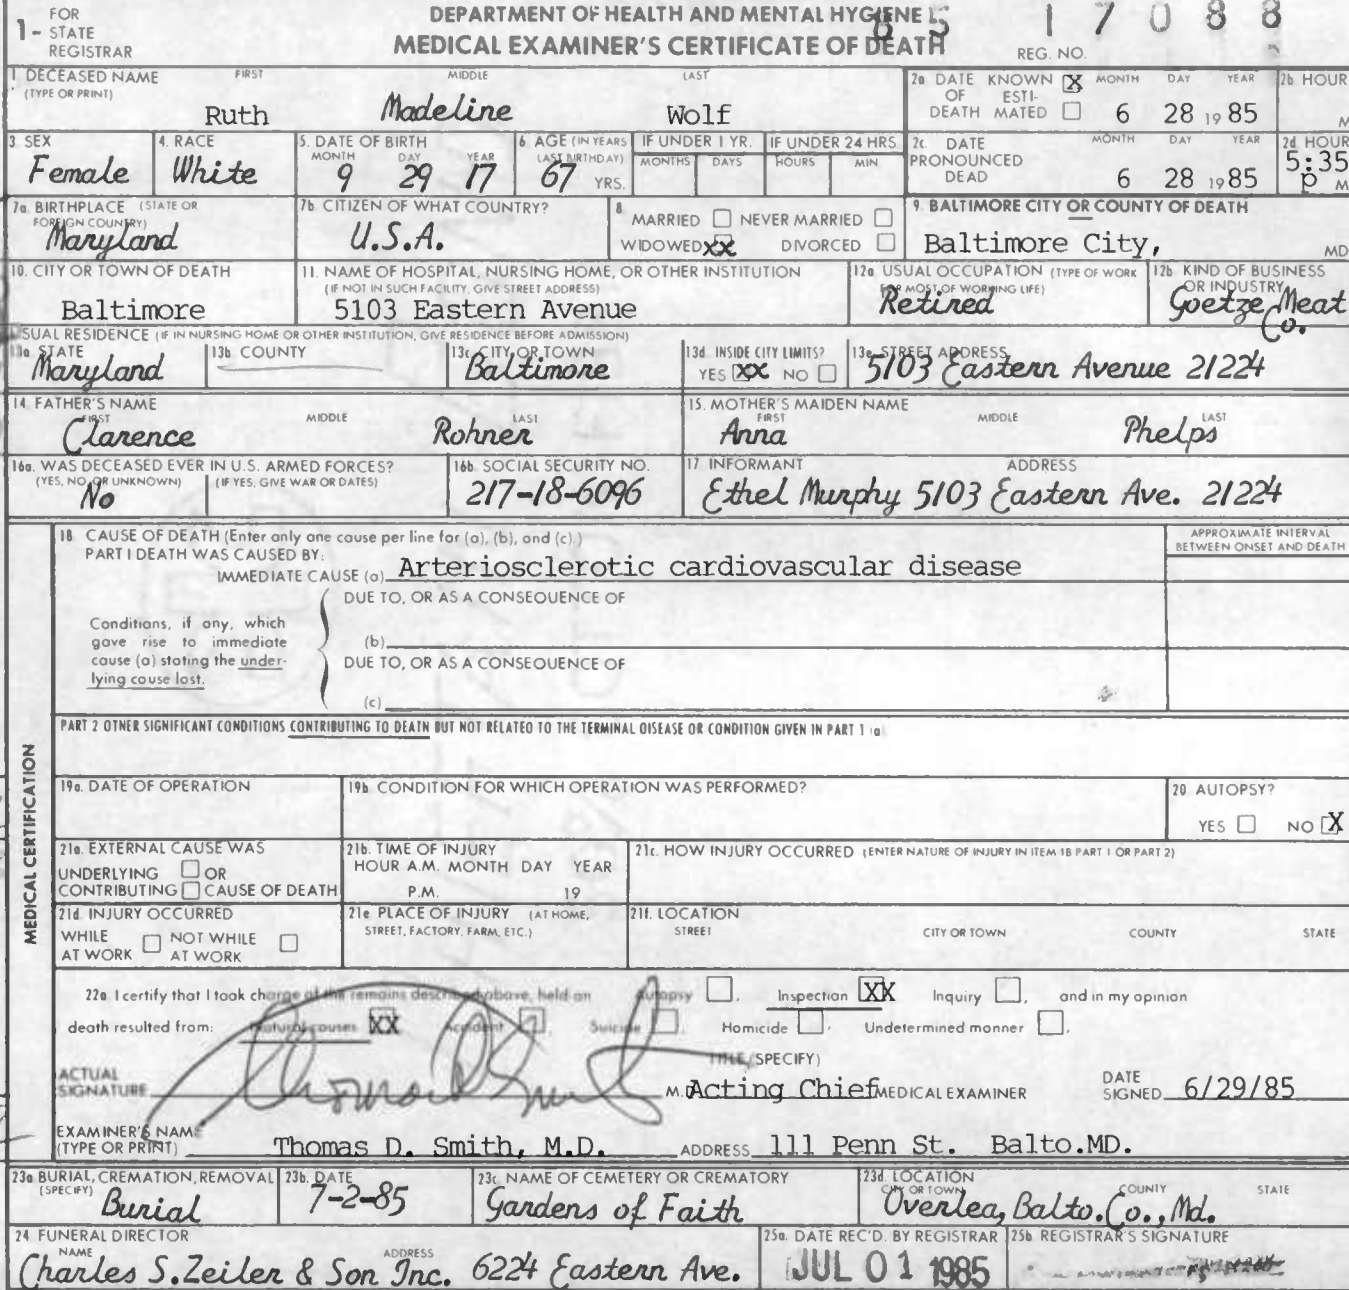 1- FOR STATE REGISTRAR
DEPARTMENT OF HEALTH AND MENTAL HYGIENE
MEDICAL EXAMINER'S CERTIFICATE OF DEATH
85 17088
REG. NO.
1 DECEASED NAME (TYPE OR PRINT) FIRST MIDDLE LAST
Ruth Madeline Wolf
2a. DATE OF DEATH KNOWN X ESTI-MATED MONTH DAY YEAR
6 28 1985
2b HOUR M
3 SEX
Female
4. RACE
White
5. DATE OF BIRTH MONTH DAY YEAR
9 29 17
6 AGE (IN YEARS LAST BIRTHDAY)
67 YRS.
IF UNDER 1 YR. MONTHS DAYS
IF UNDER 24 HRS HOURS MIN
2c. DATE PRONOUNCED DEAD MONTH DAY YEAR
6 28 1985
2d HOUR
5:35 p M
7a. BIRTHPLACE (STATE OR FOREIGN COUNTRY)
Maryland
7b. CITIZEN OF WHAT COUNTRY?
U.S.A.
8 MARRIED NEVER MARRIED
WIDOWED XX DIVORCED
9 BALTIMORE CITY OR COUNTY OF DEATH
Baltimore City, MD
10. CITY OR TOWN OF DEATH
Baltimore
11. NAME OF HOSPITAL, NURSING HOME, OR OTHER INSTITUTION
(IF NOT IN SUCH FACILITY, GIVE STREET ADDRESS)
5103 Eastern Avenue
12a USUAL OCCUPATION (TYPE OF WORK FOR MOST OF WORKING LIFE)
Retired
12b KIND OF BUSINESS OR INDUSTRY
Goetze Meat Co.
USUAL RESIDENCE (IF IN NURSING HOME OR OTHER INSTITUTION, GIVE RESIDENCE BEFORE ADMISSION)
13a STATE
Maryland
13b COUNTY
13c CITY OR TOWN
Baltimore
13d INSIDE CITY LIMITS?
YES XX NO
13e STREET ADDRESS
5103 Eastern Avenue 21224
14. FATHER'S NAME FIRST MIDDLE LAST
Clarence Rohner
15. MOTHER'S MAIDEN NAME FIRST MIDDLE LAST
Anna Phelps
16a. WAS DECEASED EVER IN U.S. ARMED FORCES?
(YES, NO, OR UNKNOWN) (IF YES, GIVE WAR OR DATES)
No
16b SOCIAL SECURITY NO.
217-18-6096
17 INFORMANT ADDRESS
Ethel Murphy 5103 Eastern Ave. 21224
MEDICAL CERTIFICATION
18 CAUSE OF DEATH (Enter only one cause per line for (a), (b), and (c).)
APPROXIMATE INTERVAL
BETWEEN ONSET AND DEATH
PART I DEATH WAS CAUSED BY:
IMMEDIATE CAUSE (a) Arteriosclerotic cardiovascular disease
DUE TO, OR AS A CONSEQUENCE OF
Conditions, if any, which
gave rise to immediate
cause (a) stating the under-
lying cause last.
(b)
DUE TO, OR AS A CONSEQUENCE OF
(c)
PART 2 OTHER SIGNIFICANT CONDITIONS CONTRIBUTING TO DEATH BUT NOT RELATED TO THE TERMINAL DISEASE OR CONDITION GIVEN IN PART 1 (a)
19a. DATE OF OPERATION
19b CONDITION FOR WHICH OPERATION WAS PERFORMED?
20 AUTOPSY?
YES NO X
21a. EXTERNAL CAUSE WAS
UNDERLYING OR
CONTRIBUTING CAUSE OF DEATH
21b. TIME OF INJURY
HOUR A.M. MONTH DAY YEAR
P.M. 19
21c. HOW INJURY OCCURRED (ENTER NATURE OF INJURY IN ITEM 18 PART 1 OR PART 2)
21d INJURY OCCURRED
WHILE AT WORK NOT WHILE AT WORK
21e PLACE OF INJURY (AT HOME,
STREET, FACTORY, FARM, ETC.)
21f. LOCATION
STREET CITY OR TOWN COUNTY STATE
22a I certify that I took charge of the remains described above, held an Autopsy , Inspection XX Inquiry , and in my opinion
death resulted from: Natural causes XX Accident , Suicide , Homicide , Undetermined manner .
TITLE (SPECIFY)
ACTUAL SIGNATURE Thomas D Smith M.D. Acting Chief MEDICAL EXAMINER DATE SIGNED 6/29/85
EXAMINER'S NAME (TYPE OR PRINT) Thomas D. Smith, M.D. ADDRESS 111 Penn St. Balto.MD.
23a BURIAL, CREMATION, REMOVAL (SPECIFY)
Burial
23b. DATE
7-2-85
23c NAME OF CEMETERY OR CREMATORY
Gardens of Faith
23d. LOCATION CITY OR TOWN COUNTY STATE
Overlea, Balto. Co., Md.
24 FUNERAL DIRECTOR
NAME ADDRESS
Charles S. Zeiler & Son Inc. 6224 Eastern Ave.
25a. DATE REC'D. BY REGISTRAR
JUL 01 1985
25b REGISTRAR'S SIGNATURE